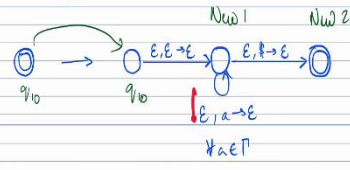 New 1 New 2
ε, ε → ε ε, $ → ε
q10 q10
ε, a → ε
∀a ∈ Γ